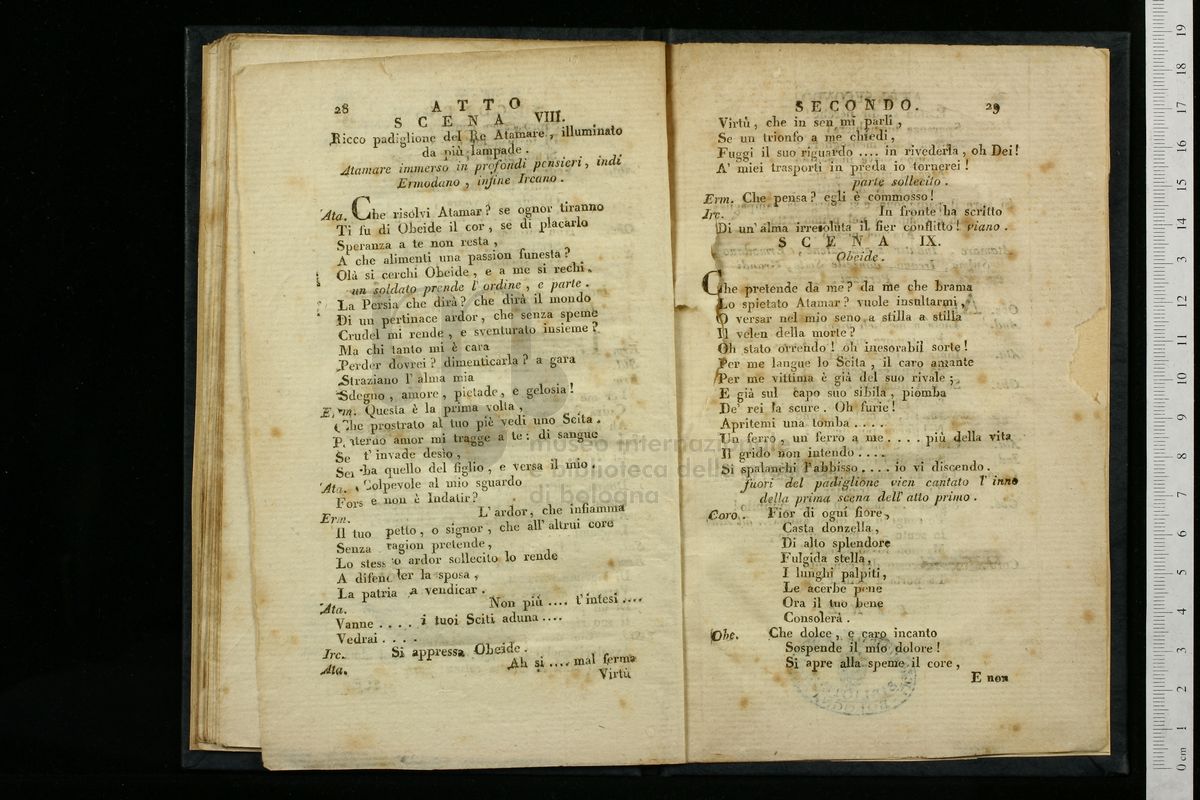 28 ATTO
SCENA VIII.
Ricco padiglione del Re Atamare, illuminato
da più lampade.
Atamare immerso in profondi pensieri, indi
Ermodano, infine Ircano.
Ata. Che risolvi Atamar? se ognor tiranno
Ti fu di Obeide il cor, se di placarlo
Speranza a te non resta,
A che alimenti una passion funesta?
Olà si cerchi Obeide, e a me si rechi.
un soldato prende l'ordine, e parte.
La Persia che dirà? che dirà il mondo
Di un pertinace ardor, che senza speme
Crudel mi rende, e sventurato insieme?
Ma chi tanto mi è cara
Perder dovrei? dimenticarla? a gara
Straziano l'alma mia
Sdegno, amore, pietade, e gelosia!
Erm. Questa è la prima volta,
Che prostrato al tuo piè vedi uno Scita.
Paterno amor mi tragge a te: di sangue
Se t'invade desìo,
Serba quello del figlio, e versa il mio.
Ata. Colpevole al mio sguardo
Forse non è Indatir?
Erm. L'ardor, che infiamma
Il tuo petto, o signor, che all'altrui core
Senza ragion pretende,
Lo stesso ardor sollecito lo rende
A difender la sposa,
La patria a vendicar.
Ata. Non più .... t'intesi ....
Vanne .... i tuoi Sciti aduna ....
Vedrai ....
Irc. Si appressa Obeide.
Ata. Ah si .... mal ferma
Virtù
SECONDO. 29
Virtù, che in sen mi parli,
Se un trionfo a me chiedi,
Fuggi il suo riguardo .... in rivederla, oh Dei!
A' miei trasporti in preda io tornerei!
parte sollecito.
Erm. Che pensa? egli è commosso!
Irc. In fronte ha scritto
Di un'alma irresoluta il fier conflitto! viano.
SCENA IX.
Obeide.
Che pretende da me? da me che brama
Lo spietato Atamar? vuole insultarmi,
O versar nel mio seno a stilla a stilla
Il velen della morte?
Oh stato orrendo! oh inesorabil sorte!
Per me langue lo Scita, il caro amante
Per me vittima è già del suo rivale;
E già sul capo suo sibila, piomba
De' rei la scure. Oh furie!
Apritemi una tomba ....
Un ferro, un ferro a me .... più della vita
Il grido non intendo ....
Si spalanchi l'abbisso .... io vi discendo.
fuori del padiglione vien cantato l'inno
della prima scena dell'atto primo.
Coro. Fior di ogni fiore,
Casta donzella,
Di alto splendore
Fulgida stella,
I lunghi palpiti,
Le acerbe pene
Ora il tuo bene
Consolerà.
Obe. Che dolce, e caro incanto
Sospende il mio dolore!
Si apre alla speme il core,
E non
museo internazionale
e biblioteca della
di bologna
0 cm 1 2 3 4 5 6 7 8 9 10 11 12 13 14 15 16 17 18 19